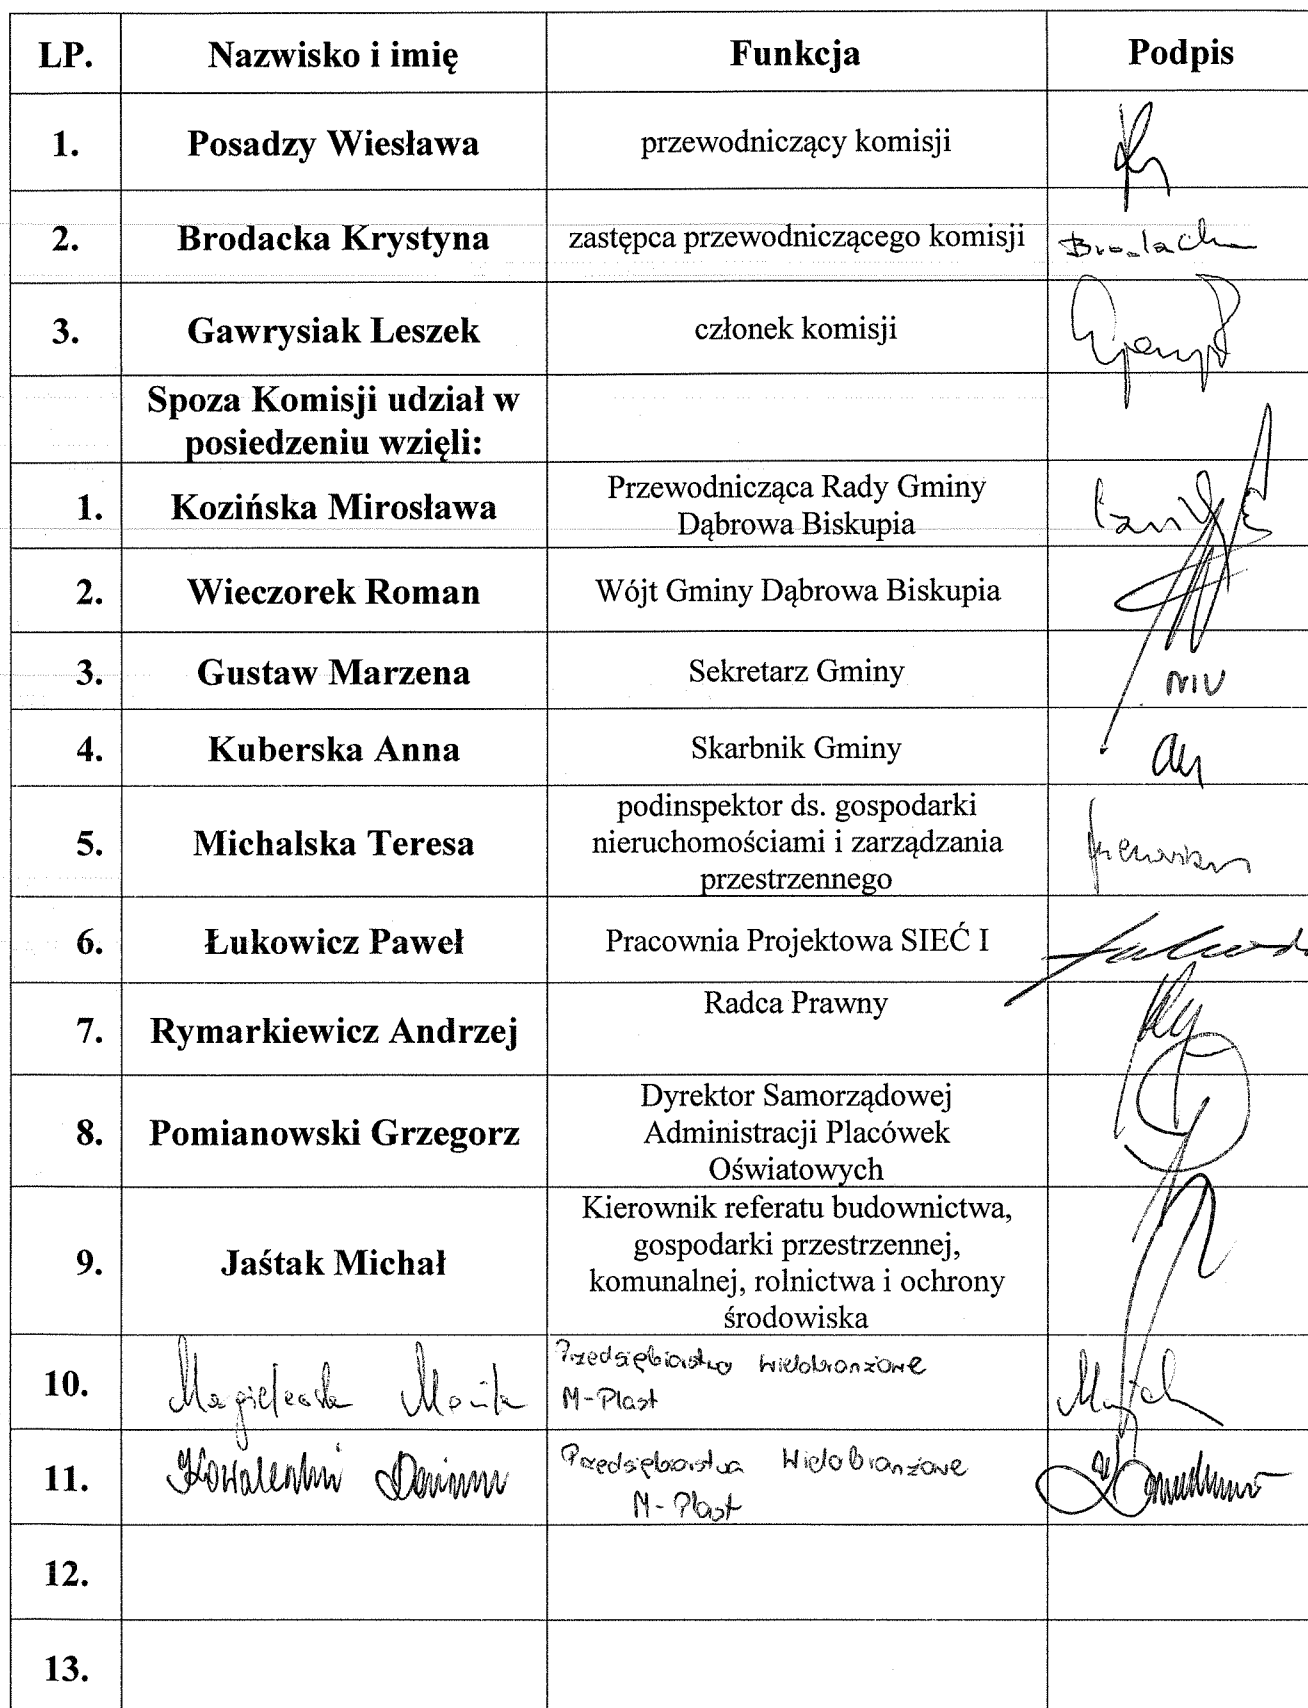 LP. Nazwisko i imię Funkcja Podpis
1. Posadzy Wiesława przewodniczący komisji
2. Brodacka Krystyna zastępca przewodniczącego komisji
3. Gawrysiak Leszek członek komisji
Spoza Komisji udział w
posiedzeniu wzięli:
1. Kozińska Mirosława Przewodnicząca Rady Gminy
Dąbrowa Biskupia
2. Wieczorek Roman Wójt Gminy Dąbrowa Biskupia
3. Gustaw Marzena Sekretarz Gminy
4. Kuberska Anna Skarbnik Gminy
5. Michalska Teresa podinspektor ds. gospodarki
nieruchomościami i zarządzania
przestrzennego
6. Łukowicz Paweł Pracownia Projektowa SIEĆ I
7. Rymarkiewicz Andrzej Radca Prawny
8. Pomianowski Grzegorz Dyrektor Samorządowej
Administracji Placówek
Oświatowych
9. Jaśtak Michał Kierownik referatu budownictwa,
gospodarki przestrzennej,
komunalnej, rolnictwa i ochrony
środowiska
10. Przedsiębiorstwo Wielobranżowe
M-Plast
11. Przedsiębiorstwo Wielobranżowe
M-Plast
12.
13.